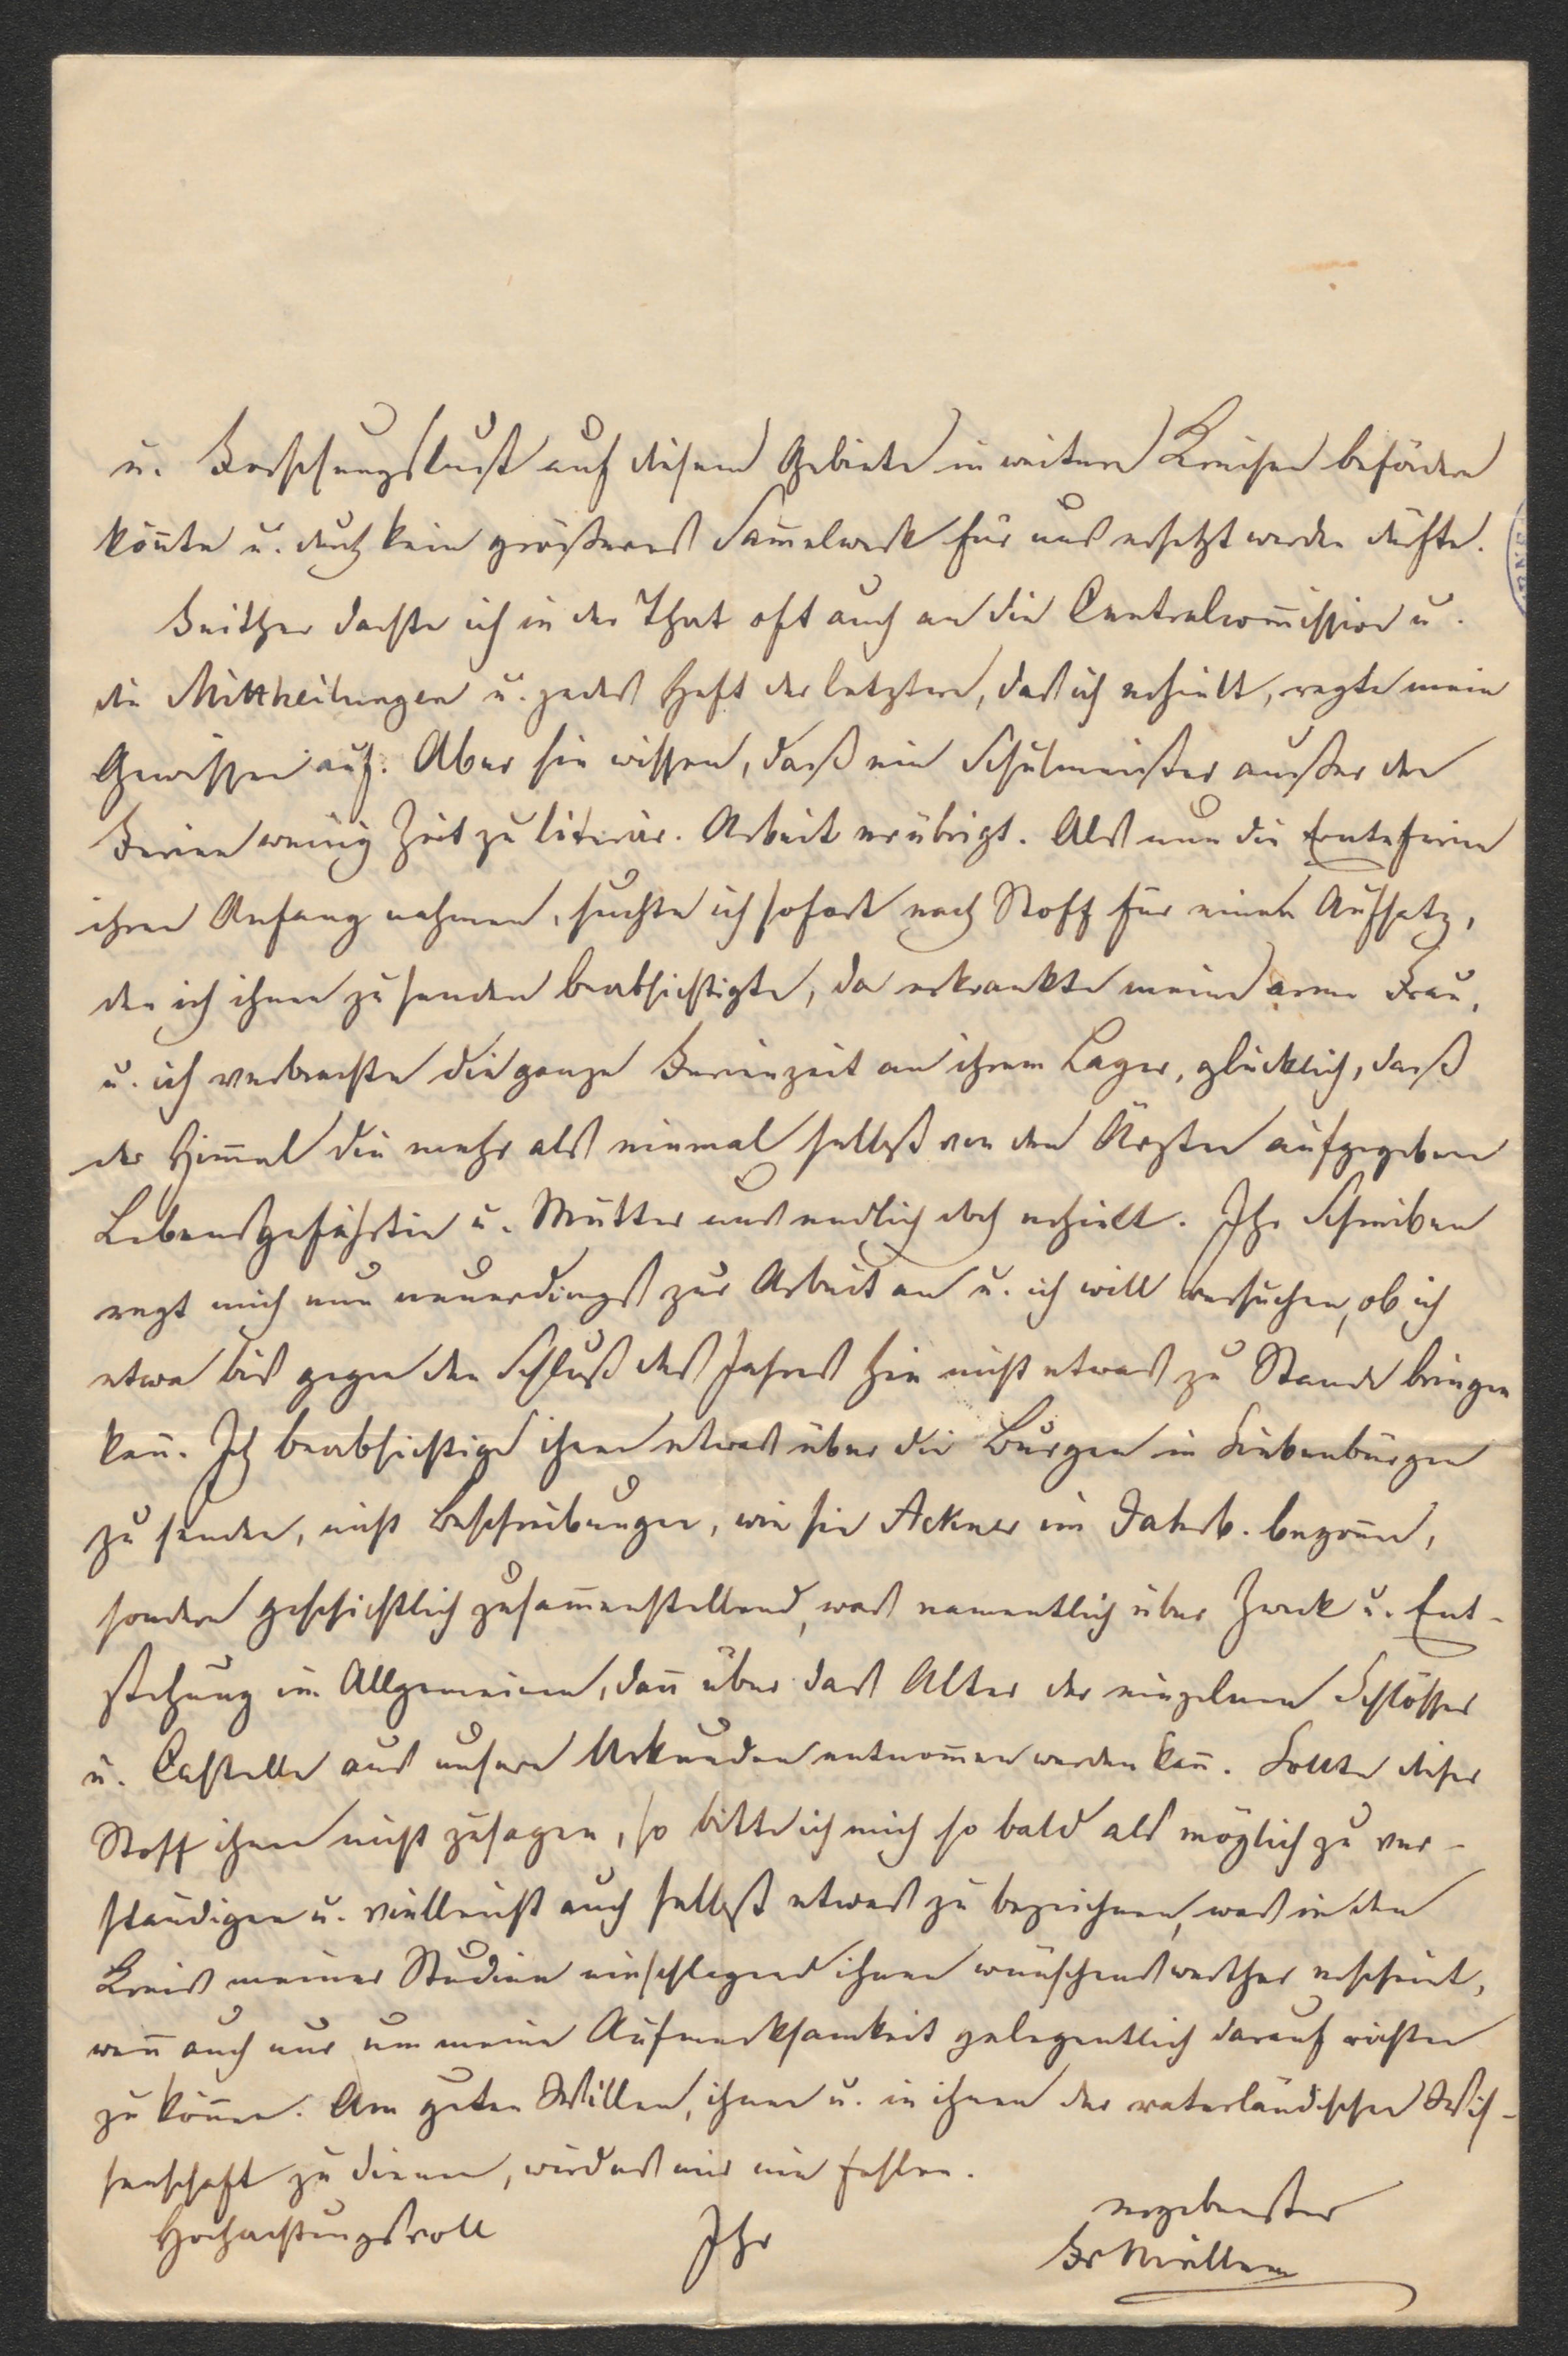 u. Forschungslust auf diesem Gebiete in weitern Kreisen befördern
kön̄te u. durch kein größeres Sam̄elwerk für uns ersetzt werden dürfte.
Seither dachte ich in der That oft auch an die Centralcom̄ission u.
die Mittheilungen u. jedes Heft der letztern, das ich erhielt, regte mein
Gewissen auf. Aber sie wissen, daß ein Schulmeister außer den
Ferien wenig Zeit zu literär. Arbeit erübrigt. Als nun die Ernteferien
ihren Anfang nahmen, suchte ich sofort nach Stoff für einen Aufsatz,
den ich ihnen zu senden beabsichtigte, da erkrankte meine arme Frau,
u. ich verbrachte die ganze Ferienzeit an ihrem Lager, glücklich, daß
der Him̄el die mehr als einmal selbst von den Ärzten aufgegebene
Lebensgefährtin u. Mutter uns endlich doch erhielt. Ihr Schreiben
regt mich nun neuerdings zur Arbeit an u. ich will versuchen, ob ich
etwa bis gegen den Schluß des Jahres hin nicht etwas zu Stande bringen
kan̄. Ich beabsichtige ihnen etwas über die Burgen in Siebenbürgen
zu senden, nicht Beschreibungen, wie sie Ackner im Jahrb. begon̄en,
sondern geschichtlich zusam̄enstellend, was namentlich über Zweck u. Ent-
stehung im Allgemeinen, dan̄ über das Alter der einzelnen Schlösser
u. Castelle aus unsern Urkunden entnom̄en werden kan̄. Sollte dieser
Stoff ihnen nicht zusagen, so bitte ich mich so bald als möglich zu ver-
ständigen u. vielleicht auch selbst etwas zu bezeichnen, was in den
Kreis meiner Studien einschlagend ihnen wünschenswerther erscheint,
wen̄ auch nur um meine Aufmerksamkeit gelegentlich darauf richten
zu kön̄en. Am guten Willen, ihnen u. in ihnen der vaterländischen Wis-
senschaft zu dienen, wird es mir nie fehlen.
Hochachtungsvoll Ihr ergebenster
Fr Müller